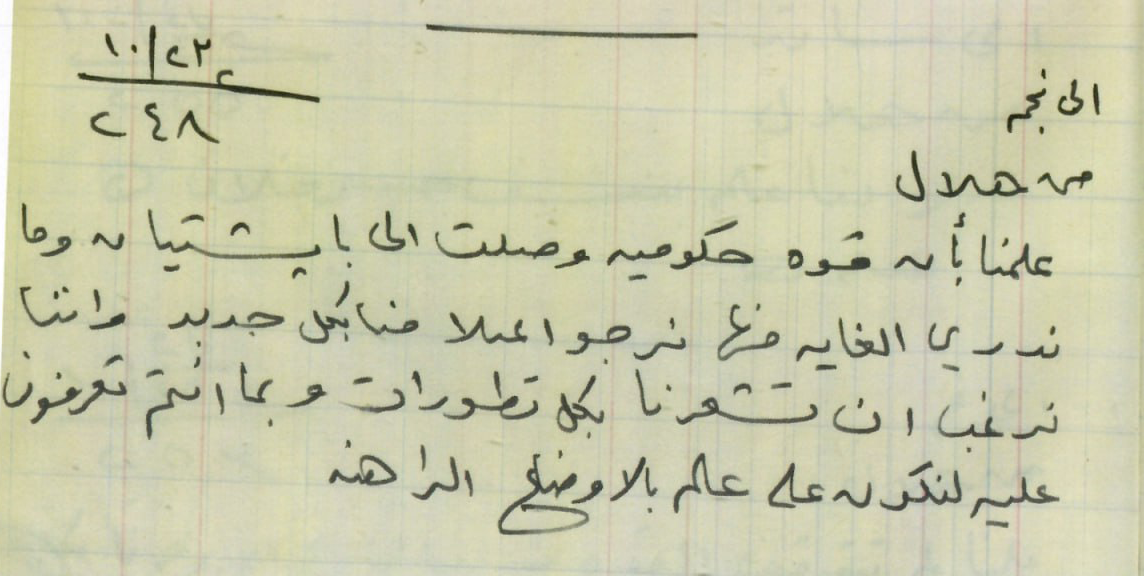 ١٠/٢٣
٢٤٨
الى نجم
من هلال
علمنا بأن قوه حكوميه وصلت الى باپشتيان وما
ندري الغايه منها نرجو اعلامنا بكل جديد واننا
نرغب ان تشعرنا بكل تطورات وبما انتم تعرفون
عليه لنكون على علم بالاوضاع الراهنه